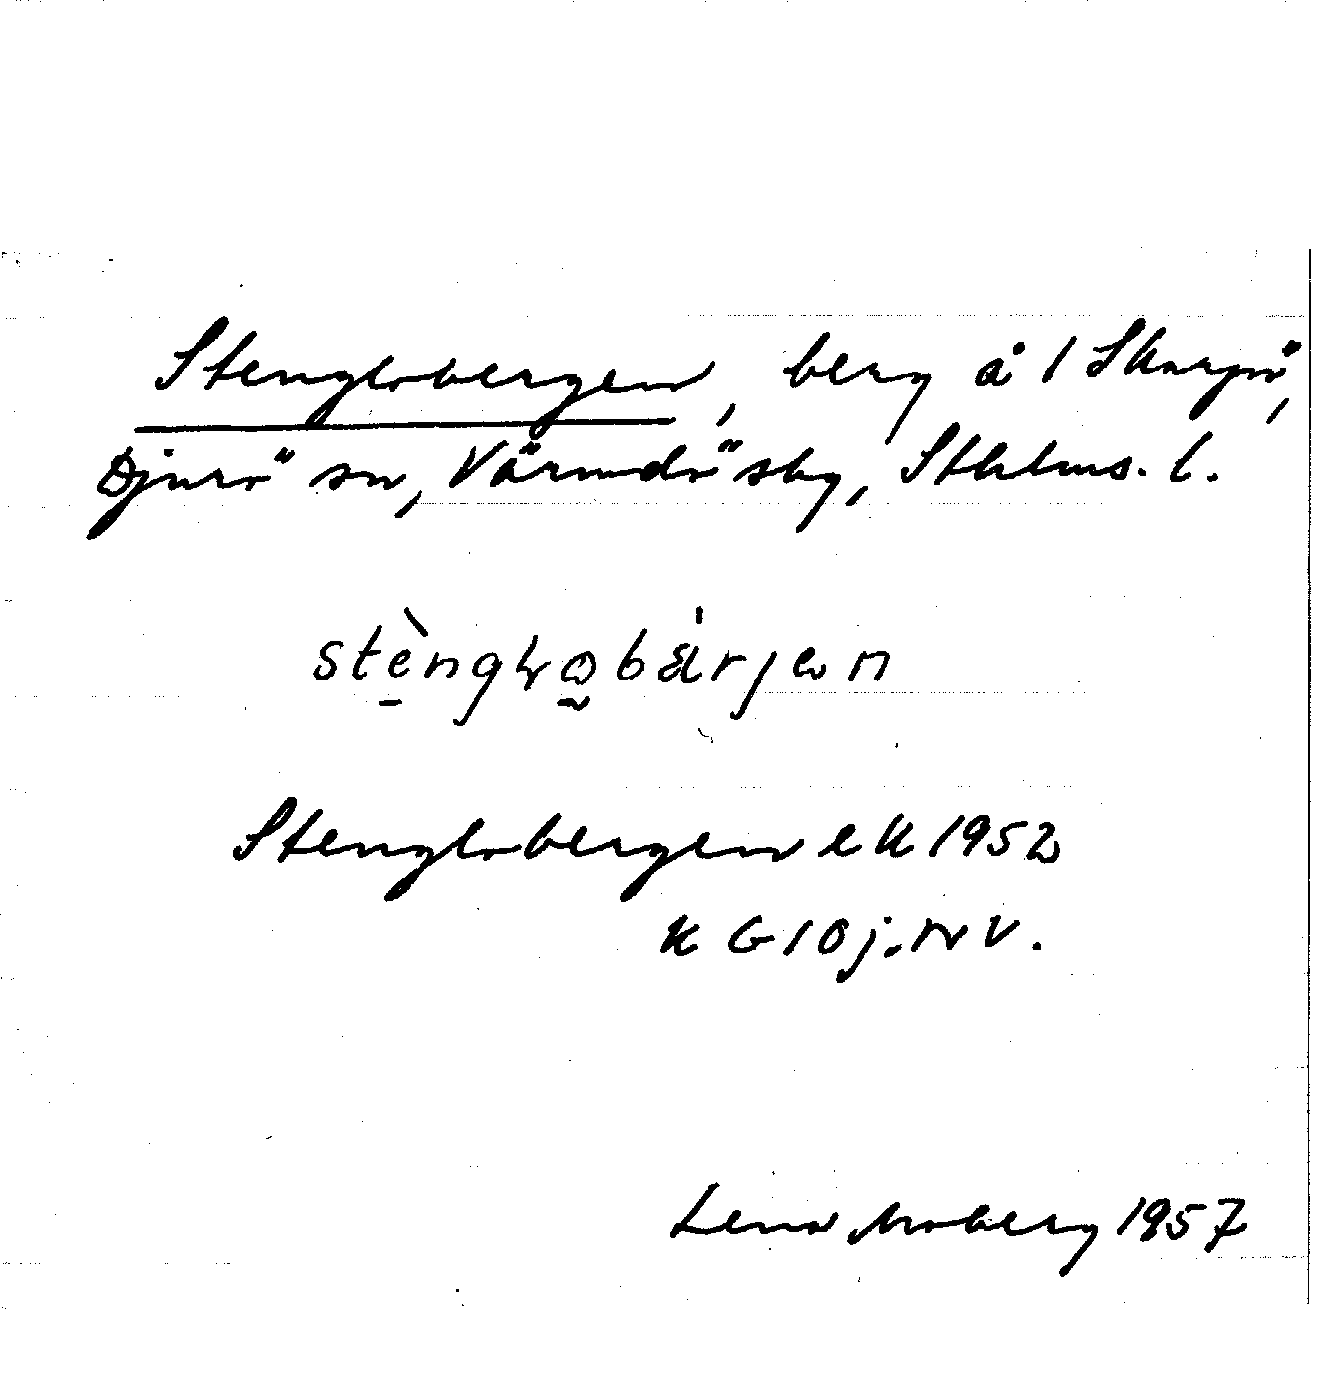 Stenglobergen, berg å 1 Skarpö,
Djurö sn, Värmdö skg, Sthlms. l.
stèngɫobä́rjən
Stenglobergen ek 1952
K G 10 j. NV.
Lena Moberg 1957